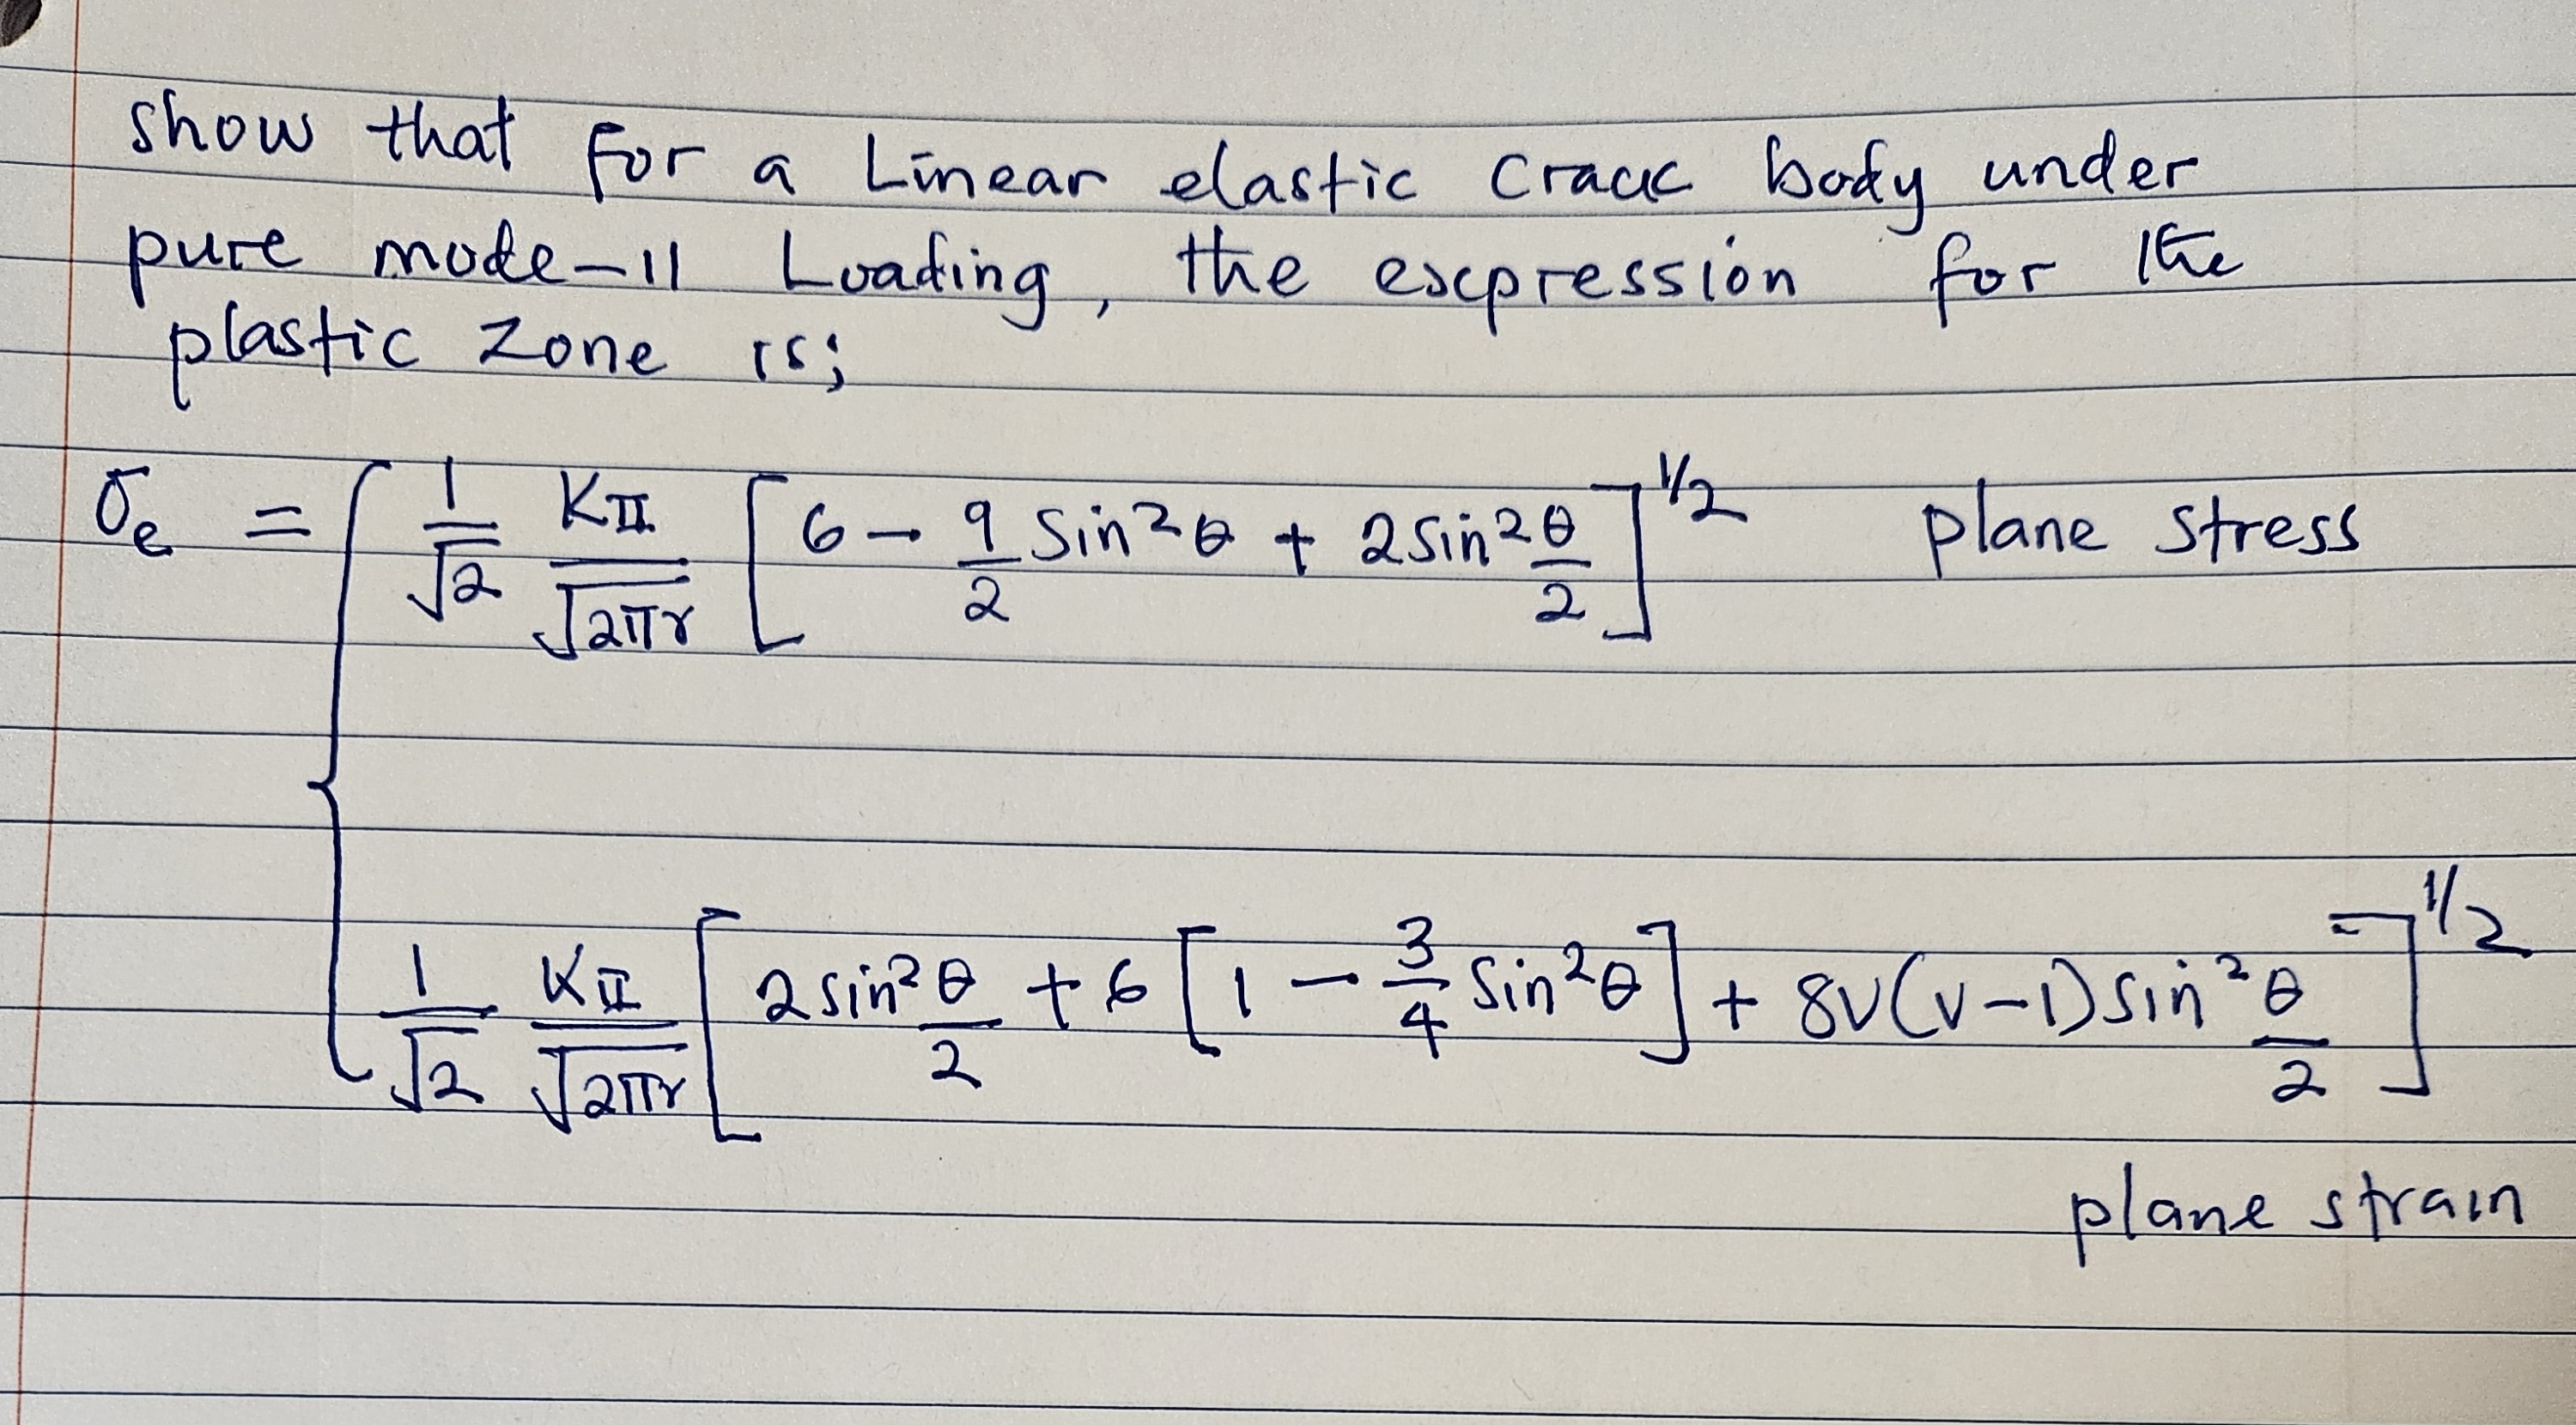 show that for a Linear elastic crack body under
pure mode-II Loading, the expression for the
plastic zone is;
σe = { 1/√2 KII/√2πr [6 - 9/2 Sin²θ + 2Sin²θ/2]^1/2 plane stress
1/√2 KII/√2πr [2sin²θ/2 + 6[1 - 3/4 Sin²θ] + 8ν(ν-1)Sin²θ/2]^1/2
plane strain